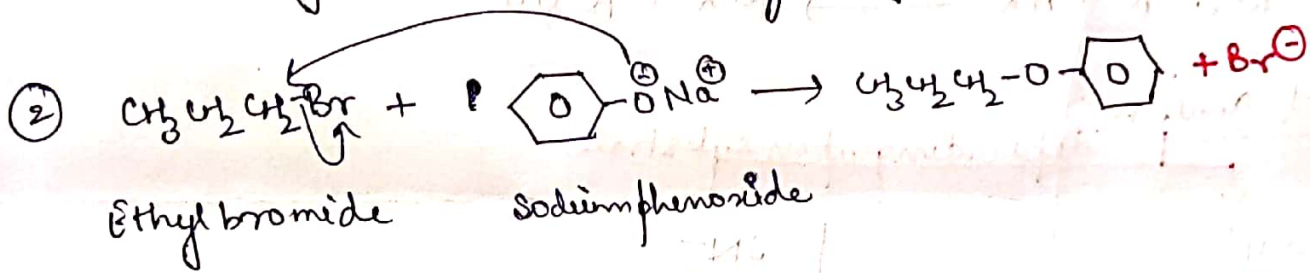 ② CH₃CH₂CH₂Br + O⊖Na⊕ → CH₃CH₂CH₂-O- + Br⊖
Ethyl bromide Sodiumphenoxide